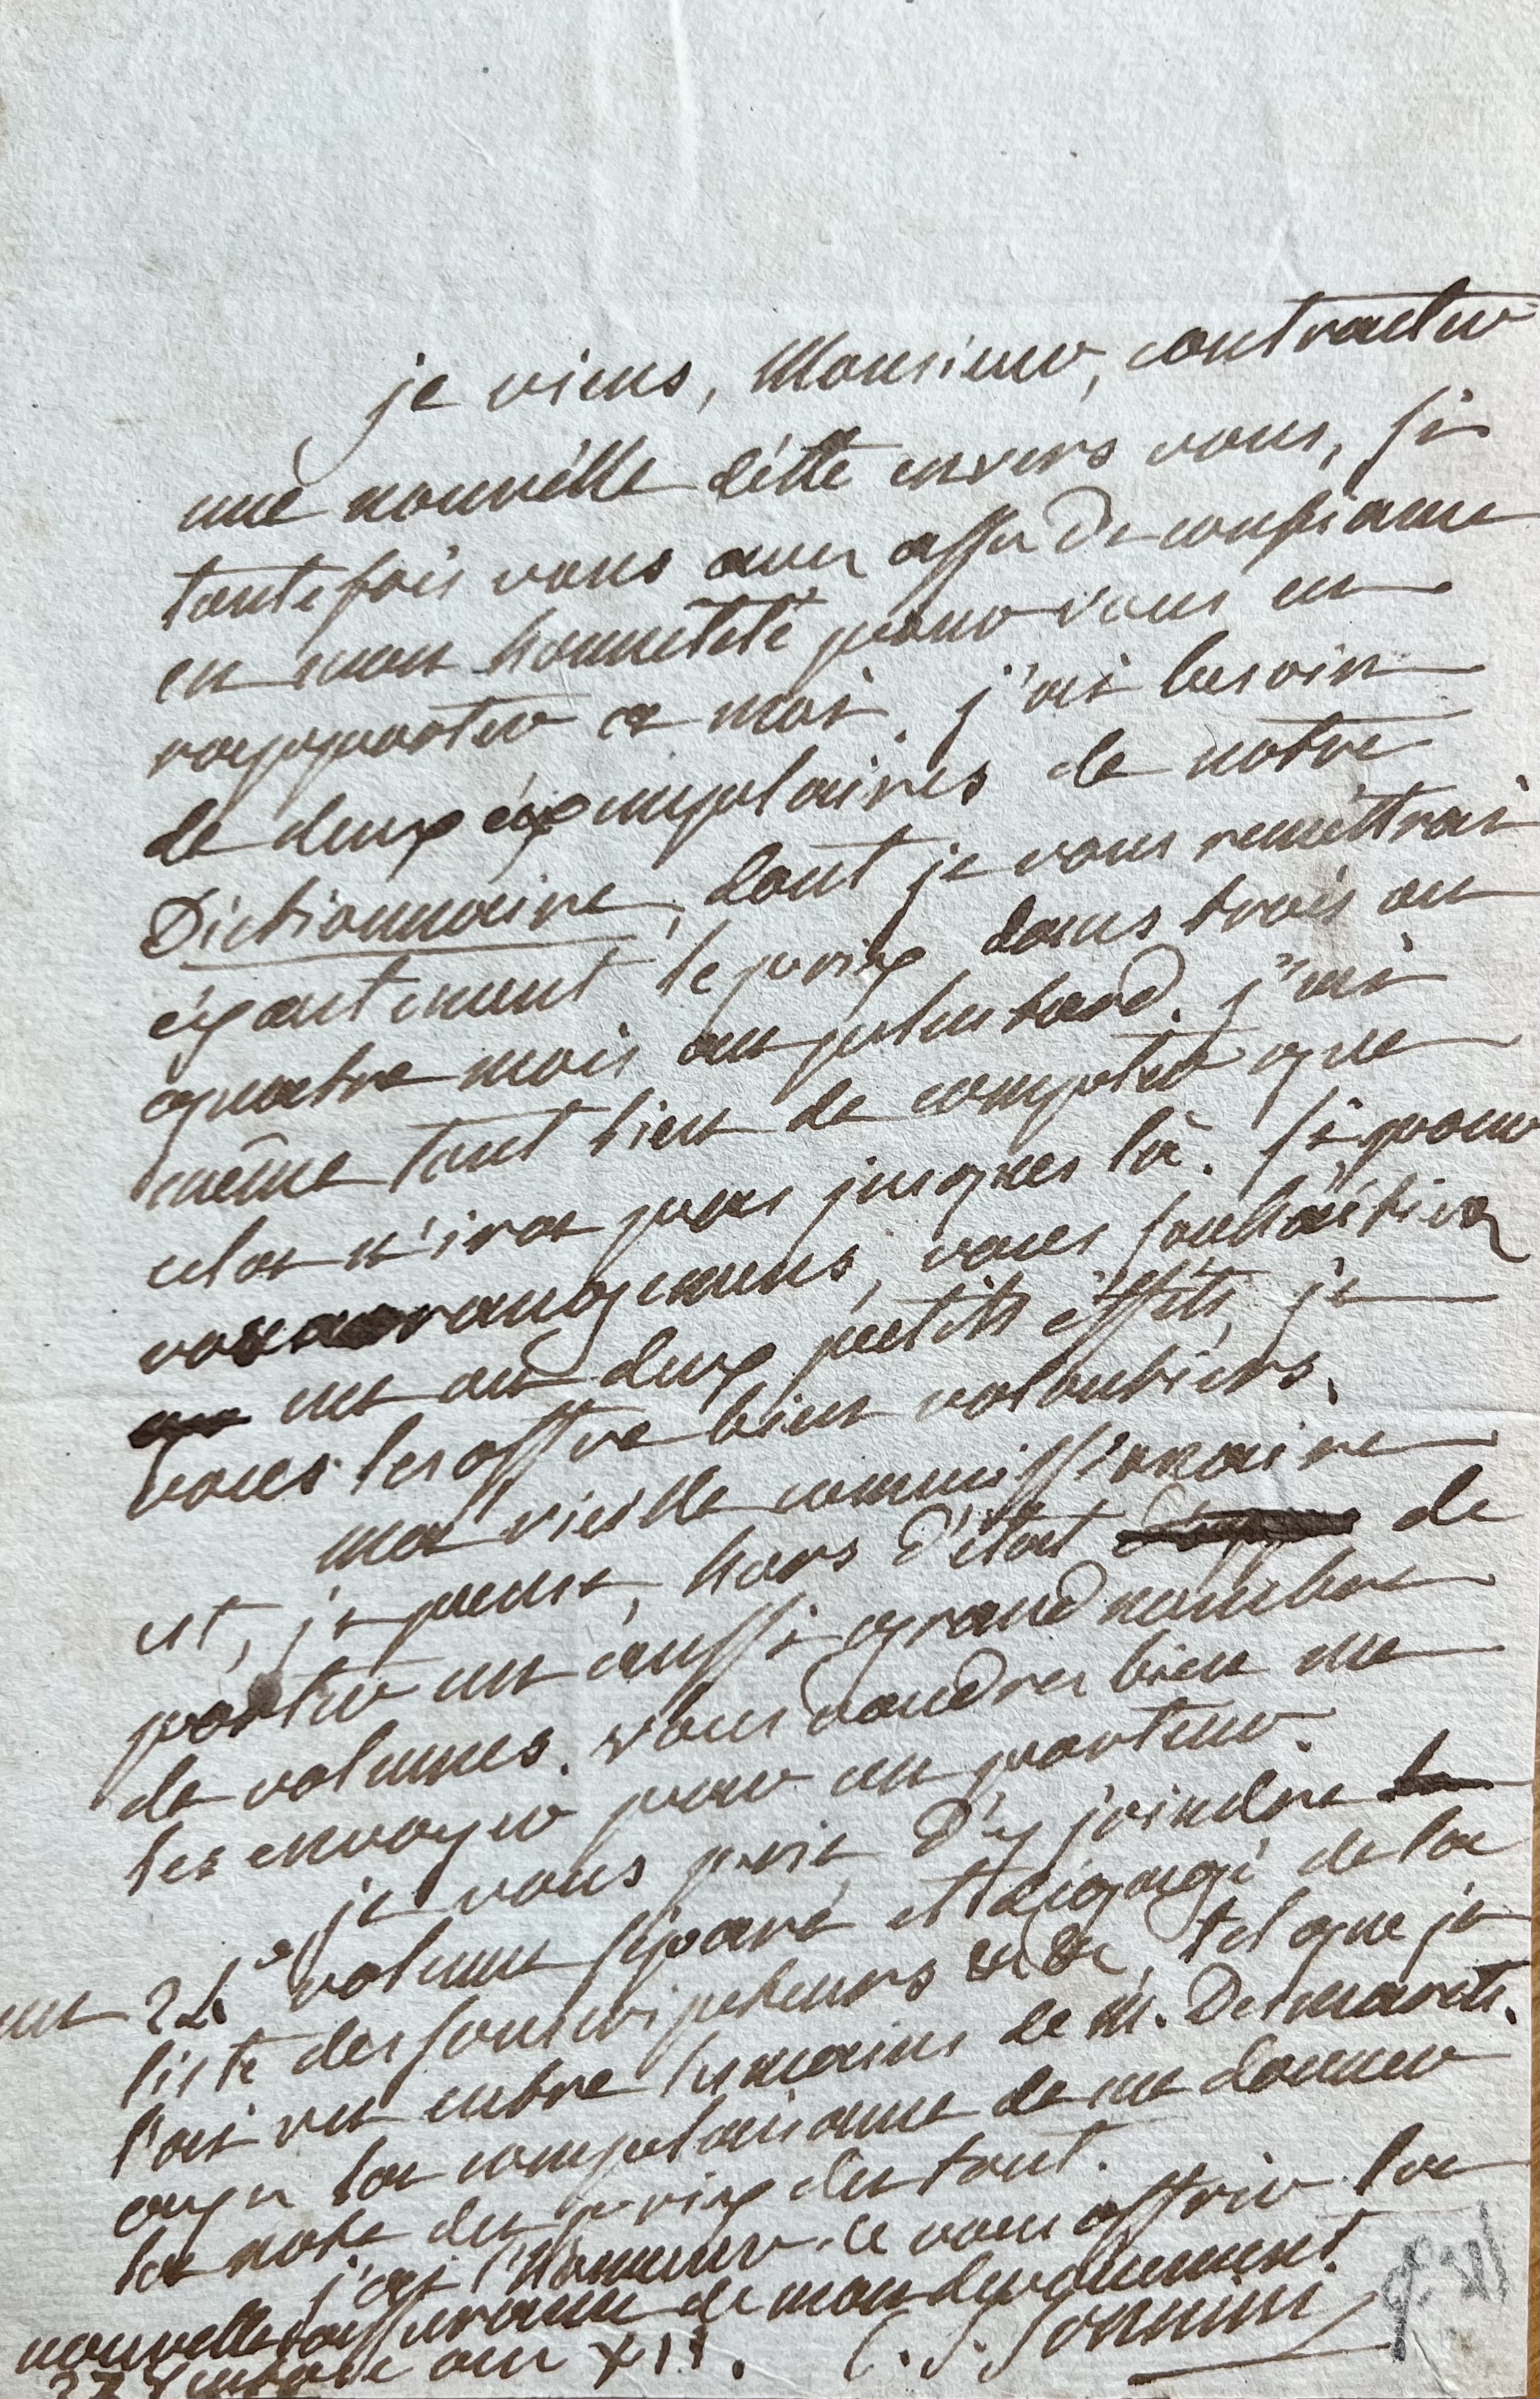 je viens, Monsieur, contracter
une nouvélle détte envers vous, si
toutefois vous avez assez de confiance
en mon honnêteté pour vous en
rapporter a moi. j'ai besoin
de deux éxemplaires de notre
Dictionnaire, dont je vous reméttrai
éxactement le prix dans trois ou
quatre mois au plus tard. j'ai
même tout lieu de compter que
cela n'ira pas jusques là. si pour
vos arrangemens, vous souhaitiez
un ou deux petits éffets, je
vous les offre bien volontiers.
ma vieille commissionaire
est, je pense, hors d'état de
porter un aussi grand nombre
de volumes. vous voudrez bien me
les envoyer par un porteur.
je vous prie d'y joindre
un 24e volume séparé et dégagé de la
liste des souscripteurs &c &c, tel que je
l'ai vu entre les mains de M. Desmarets.
ayez la complaisance de me donner
la note du prix du tout.
j'ai l'honneur de vous offrir la
nouvelle assurance de mon dévouement.
an XII. C. S. Sonnini